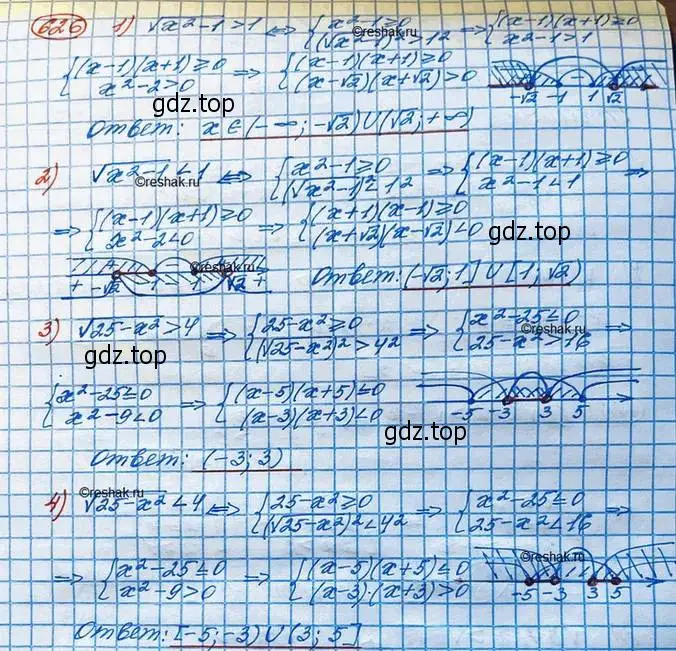 626 1) √x²-1 > 1 ⟺ { x²-1≥0 (√x²-1)² > 1² ⟹ { (x-1)(x+1)≥0 x²-1>1
{ (x-1)(x+1)≥0 x²-2>0 ⟹ { (x-1)(x+1)≥0 (x-√2)(x+√2)>0 -√2 -1 - 1 √2
gdz.top
Ответ: x∈(-∞; -√2)∪(√2; +∞)
2) √x²-1 < 1 ⟺ { x²-1≥0 (√x²-1)² < 1² ⟹ { (x-1)(x+1)≥0 x²-1<1 ⟹
©reshak.ru
⟹ { (x-1)(x+1)≥0 x²-2<0 ⟹ { (x+1)(x-1)≥0 (x+√2)(x-√2)<0
©reshak.ru
+ -√2 -1 1 √2 + Ответ: (-√2; 1]∪[1; √2)
3) √25-x² > 4 ⟹ { 25-x²≥0 (√25-x²)² > 4² ⟹ { x²-25≤0 25-x²>16 ⟹
©reshak.ru
gdz.top
{ x²-25≤0 x²-9<0 ⟹ { (x-5)(x+5)≤0 (x-3)(x+3)<0 -5 -3 3 5
gdz.top
Ответ: (-3; 3)
©reshak.ru
4) √25-x² < 4 ⟺ { 25-x²≥0 (√25-x²)² < 4² ⟹ { x²-25≤0 25-x²<16 ⟹
⟹ { x²-25≤0 x²-9>0 ⟹ { (x-5)(x+5)≤0 (x-3)·(x+3)>0 -5 -3 3 5
©reshak.ru
gdz.top
Ответ: [-5; -3)∪(3; 5]